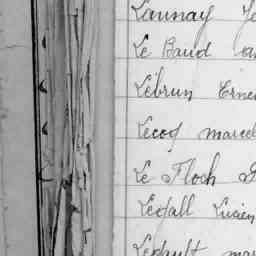 Launay Je
Le Baud
Lebrun Erne
Lecoq marcel
Le Floch
Ledall Lucien
Ledault mar